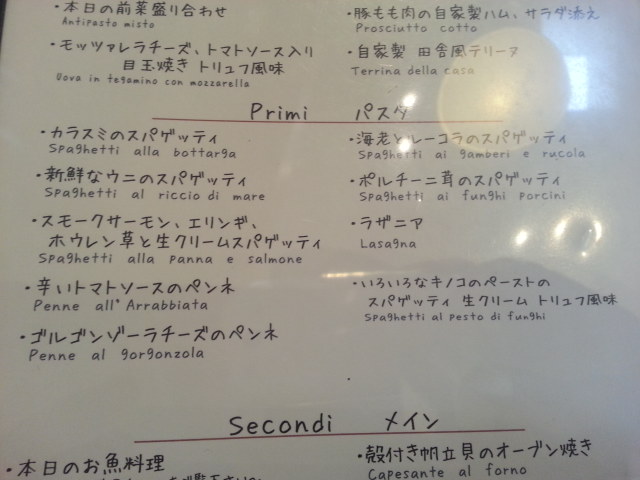 ・本日の前菜盛り合わせ
Antipasto misto
・モッツァレラチーズ、トマトソース入り
目玉焼き トリュフ風味
Uova in tegamino con mozzarella
・豚もも肉の自家製ハム、サラダ添え
Prosciutto cotto
・自家製 田舎風テリーヌ
Terrina della casa
Primi パスタ
・カラスミのスパゲッティ
Spaghetti alla bottarga
・新鮮なウニのスパゲッティ
Spaghetti al riccio di mare
・スモークサーモン、エリンギ、
ホウレン草と生クリームスパゲッティ
Spaghetti alla panna e salmone
・辛いトマトソースのペンネ
Penne all'Arrabbiata
・ゴルゴンゾーラチーズのペンネ
Penne al gorgonzola
・海老とルーコラのスパゲッティ
Spaghetti ai gamberi e rucola
・ポルチーニ茸のスパゲッティ
Spaghetti ai funghi porcini
・ラザニア
Lasagna
・いろいろなキノコのペーストの
スパゲッティ 生クリーム トリュフ風味
Spaghetti al pesto di funghi
Secondi メイン
・本日のお魚料理
・殻付き帆立貝のオーブン焼き
Capesante al forno